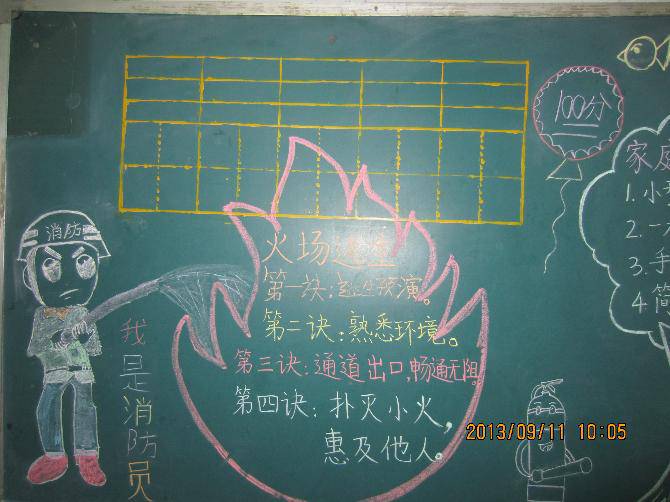 100分
消防
火场逃生
第一诀:逃生预演。
第二诀:熟悉环境。
第三诀:通道出口,畅通无阻。
第四诀:扑灭小火,
惠及他人。
我是消防员
家庭
1.小
2.一
3.手
4.简
2013/09/11 10:05